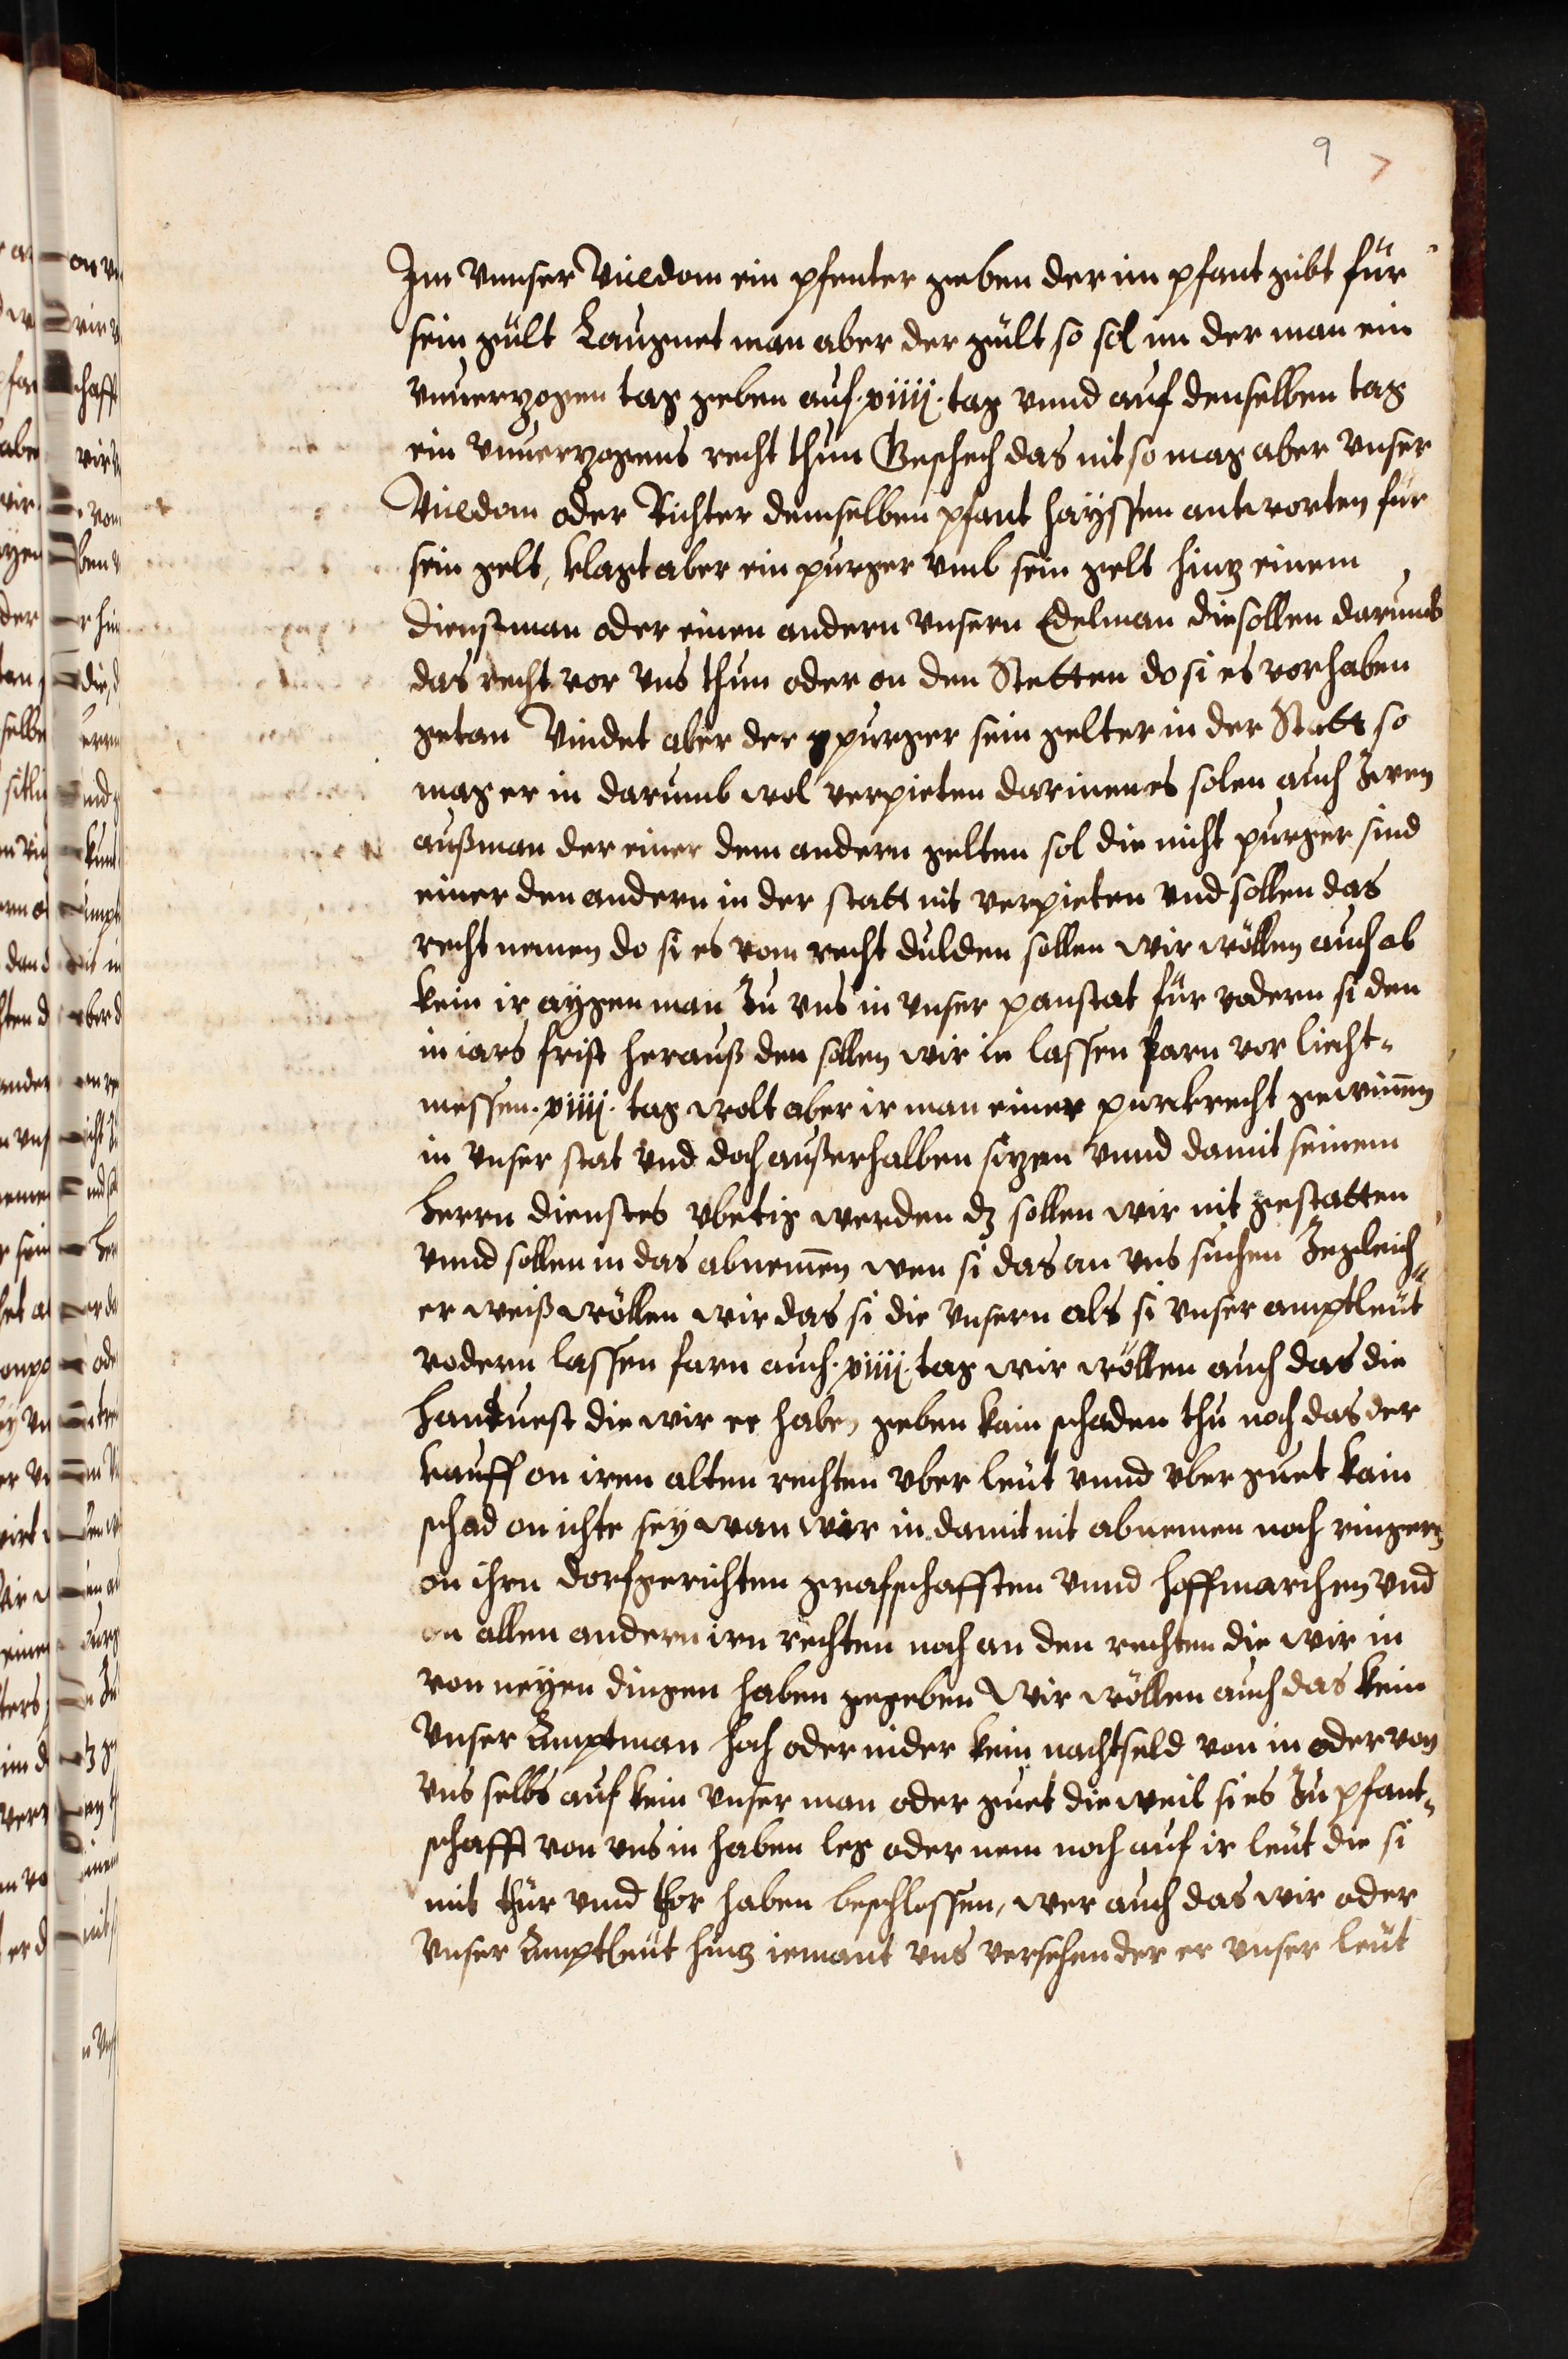 9 7
Im vnnser Vicedom ein pfenter geben der im pfant gibt für
sein gült Laugnet man aber der gült so sol im der man ein
vnuerzogen tag geben auf .xiiij. tag vnnd auf denselben tag
ein vnuerzogens recht thun Geschech das nit so mag aber vnser
Vicedom oder Richter demselben pfant hayssen antworten für
sein gelt, klagt aber ein purger vmb sein gelt hintz einem
dienstman oder einen andern vnsern Edelman die sollen darumb
das recht vor vns thun oder on den Stetten do si es vor haben
getan Vindet aber der purger sein gelter in der Statt so
mag er in darumb wol verpieten darinen es solen auch Zwen
außman der einer dem andern gelten sol die nicht purger sind
einer den andern in der statt nit verpieten vnd sollen das
recht nemen do si es vom recht dulden sollen wir wöllen auch ob
kein ir aygen man Zu vns in vnser panstat für vodern si den
in iars frist herauß den sollen wir in lassen farn vor liecht-
messen .xiiij. tag wolt aber ir man einer purckrecht gewinnen
in vnser stat vnd doch außerhalben sizen vnnd damit seinem
herrn dienstes vbetig werden dz sollen wir nit gestatten
vnnd sollen in das abnemen wen si das an vns suchen Zegleich-
er weiß wöllen wir das si die vnsern als si vnser amptleüt
vodern lassen farn auch .xiiij. tag wir wöllen auch das die
hantuest die wir ee haben geben kain schaden thu noch das der
kauff on iren alten rechten vber leüt vnnd vber guet kain
schad on ichte sey wan wir in damit nit abnemen noch ringern
on ihrn dorfgerichten grafschafften vnnd hoffmarchen vnd
on allen andern irn rechten noch an den rechten die wir in
von neyen dingen haben gegeben Wir wöllen auch das kein
vnser Amptman hoch oder nider kein nachtseld von in oder von
vns selbs auf kein vnser man oder guet die weil si es Zu pfant-
schafft von vns in haben leg oder nem noch auf ir leüt die si
mit thür vnnd thor haben beschlossen, wer auch das wir oder
vnser Amptleüt hintz iemant vns versehen der er vnser leüt